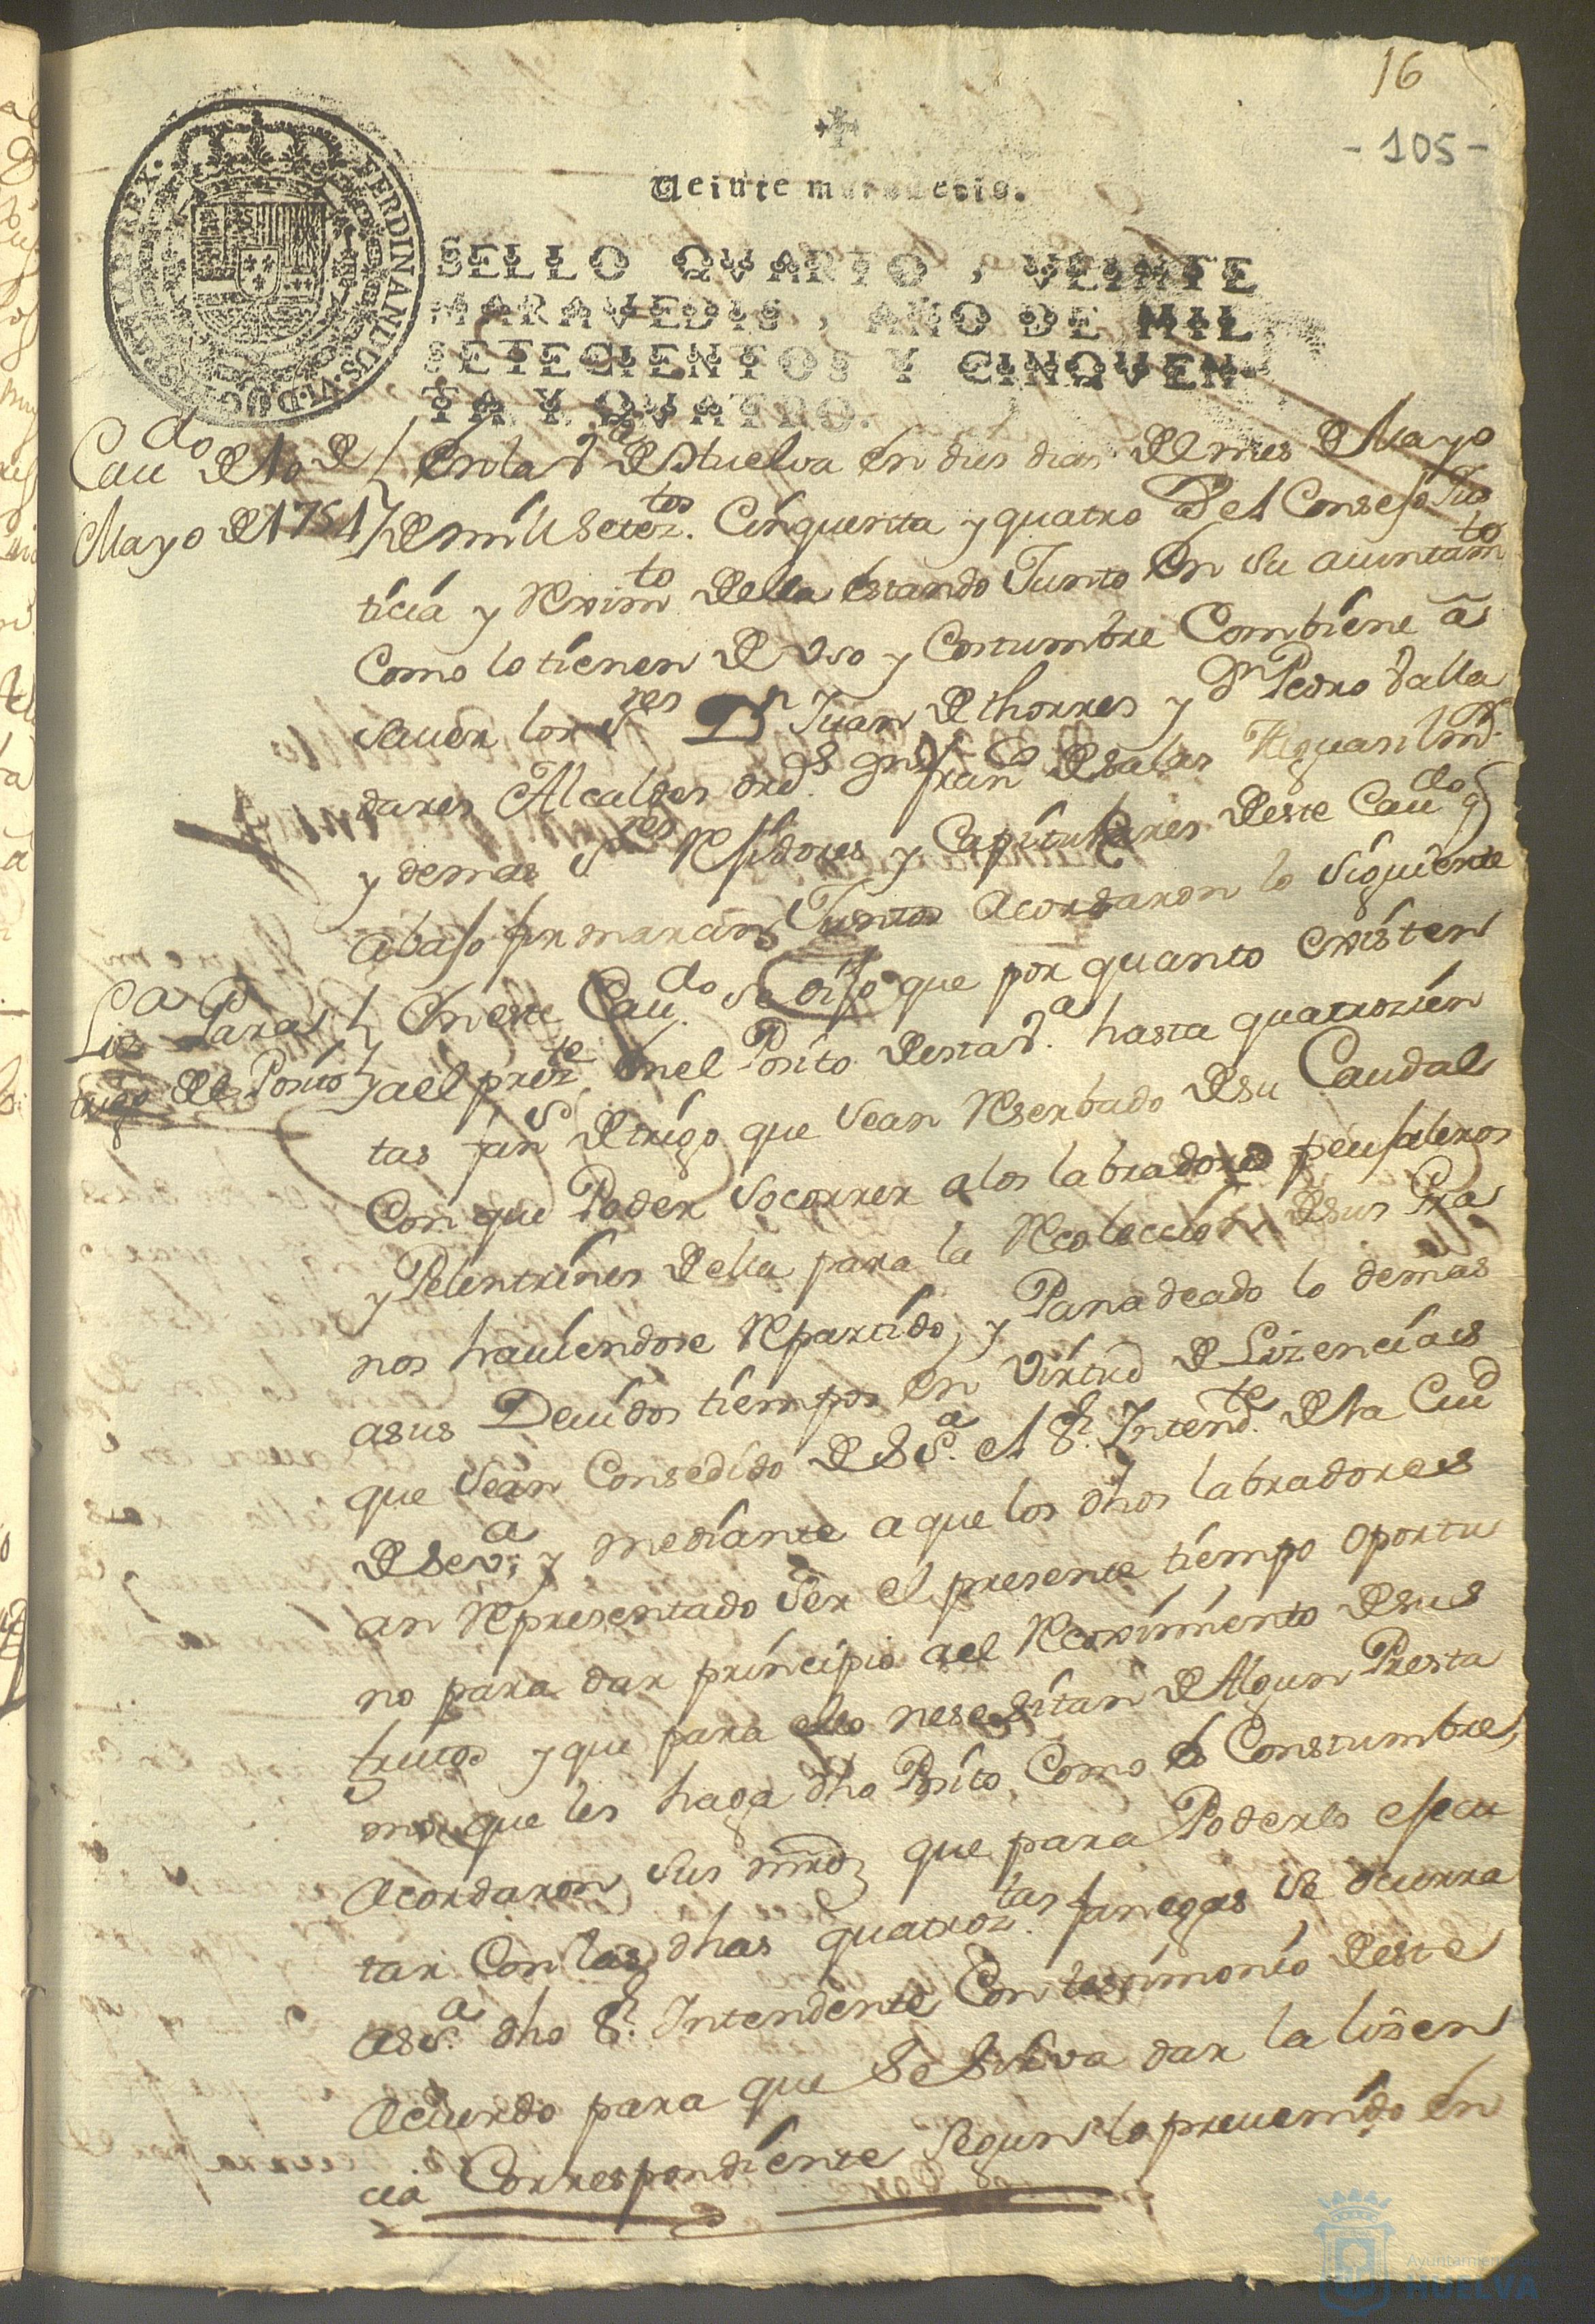 16
- 105 -
Veinte maravedis.
SELLO QVARTO, VEINTE
MARAVEDIS, AÑO DE MIL
SETECIENTOS Y CINQVEN-
TA Y QVATRO.
FERDINANDUS. VI. D. G. HISPANIAR. REX.
Caudo de 10 de
Mayo de 1754
En la Va de Huelva en dies dias del mes de Mayo
de mill Seteztos. Cinquenta y quatro el Consejo Jus
ticia y Reximto della estando Junto en su aiuntamto
Como lo tienen de Uso y Costumbre Combiene a
sauer los Sres Dn Juan de thorres y Dn Pedro Valla
dares Alcaldes ords. Dn Franco de Salas Alguasil mr.
y demas Sres Rejidores y Capitulares deste Caudo q
abajo firmaran Juntos Acordaron lo siguiente
Liza Para el
trigo del Posito
En este Caudo. se dijo que por quanto existen
ael preste. en el Posito desta Va. hasta quatrozien
tas fans de trigo que sean Reserbado de su Caudal
Con que Poder Socorrer a los labradores peujaleros
y Pelentrines della para la Recoleccion de sus Gra
nos hauiendose Repartido, y Panadeado lo demas
asus Deuidos tiempos en Virtud de Lizencias
que sean Consedido de SSa. el Sr. Intendte. de la Ciud
de Seva. y mediante a que los dhos labradores
an Representado Ser el presente tiempo oportu
no para dar principio ael Recoximiento de sus
frutos y que para ello nesesitan de Algun Presta
mo que les haga dho Posito Como es Constumbre,
Acordaron Sus mrdz que para Poderlo ejecu
tar Con las dhas quatroztas. fanegas se ocurra
a SSa. dho Sr. Intendente Con testimonio deste
Acuerdo para que Se Sirva dar la lizen
cia Correspondiente segun lo preuenido en
Ayuntamiento de
HUELVA